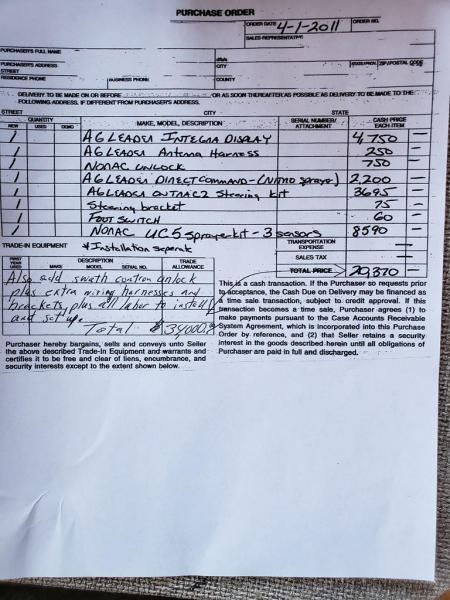 PURCHASE ORDER
ORDER DATE 4-1-2011 ORDER NO.
SALES REPRESENTATIVE
PURCHASER'S FULL NAME
PURCHASER'S ADDRESS CITY STATE/PROV. ZIP/POSTAL CODE
STREET
RESIDENCE PHONE BUSINESS PHONE COUNTY
DELIVERY TO BE MADE ON OR BEFORE OR AS SOON THEREAFTER AS POSSIBLE. DELIVERY TO BE MADE TO THE
FOLLOWING ADDRESS, IF DIFFERENT FROM PURCHASER'S ADDRESS.
STREET CITY STATE
QUANTITY MAKE, MODEL, DESCRIPTION SERIAL NUMBER/ CASH PRICE
NEW USED DEMO ATTACHMENT EACH ITEM
1 AG LEADER INTEGRA DISPLAY 4,750 —
1 AG LEADER Antenna Harness 250 —
1 NORAC UNLOCK 750 —
1 AG LEADER DIRECT COMMAND-(NITRO sprayer) 2,200 —
1 AG LEADER ONTRAC2 Steering kit 3695 —
1 Steering bracket 75 —
1 FOOT SWITCH 60 —
1 NORAC UC5 sprayer kit - 3 sensors 8590 —
TRADE-IN EQUIPMENT *Installation seperate TRANSPORTATION
EXPENSE —
SALES TAX —
TOTAL PRICE 20,370 —
FIRST YEAR USED MAKE DESCRIPTION MODEL SERIAL NO. TRADE ALLOWANCE
Also add swath control unlock
plus extra wiring harnesses and
brackets, plus all labor to install
and set up.
Total $34000.
This is a cash transaction. If the Purchaser so requests prior
to acceptance, the Cash Due on Delivery may be financed as
a time sale transaction, subject to credit approval. If this
transaction becomes a time sale, Purchaser agrees (1) to
make payments pursuant to the Case Accounts Receivable
System Agreement, which is incorporated into this Purchase
Order by reference, and (2) that Seller retains a security
interest in the goods described herein until all obligations of
Purchaser are paid in full and discharged.
Purchaser hereby bargains, sells and conveys unto Seller
the above described Trade-In Equipment and warrants and
certifies it to be free and clear of liens, encumbrance, and
security interests except to the extent shown below.